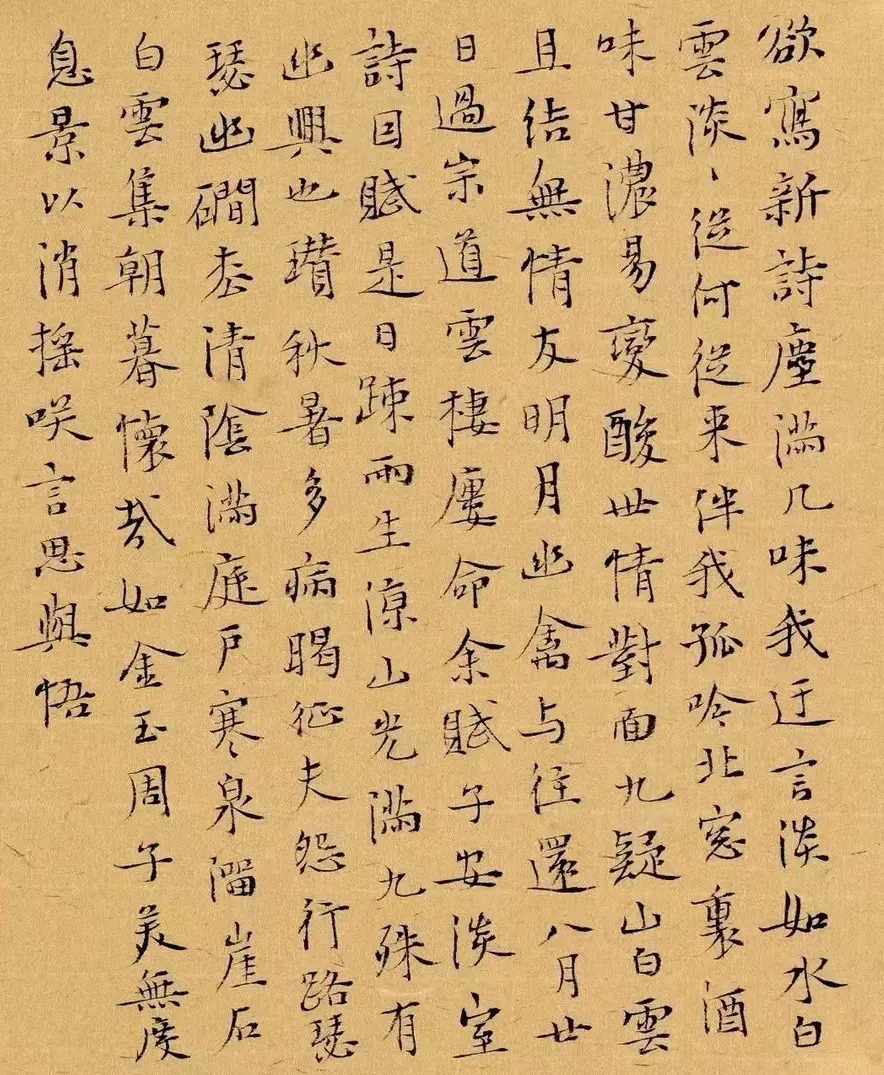 欲寫新詩塵滿几味我迂言淡如水白
雲淡〻從何從来伴我孤吟北窓裏酒
味甘濃易變酸世情對面九疑山白雲
且結無情友明月幽禽与往還八月廿
日過宗道雲棲屢命余賦子安淡室
詩因賦是日踈雨生涼山光滿几殊有
幽興也瓚秋暑多病暍征夫怨行路瑟
瑟幽磵松清陰滿庭戶寒泉溜崖石
白雲集朝暮懷哉如金玉周子美無度
息景以消摇咲言思與悟